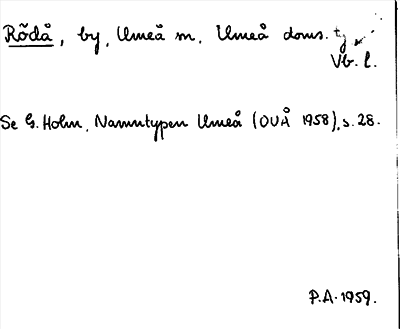 Rödå, by, Umeå m. Umeå doms. tj
Vb. l.
Se G. Holm, Namntypen Umeå (OUÅ 1958), s. 28.
P.A. 1959.